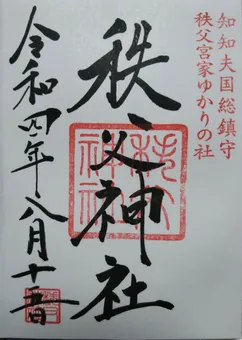 知知夫国総鎮守
秩父宮家ゆかりの社
秩父神社
秩父神社
令和四年八月十五日